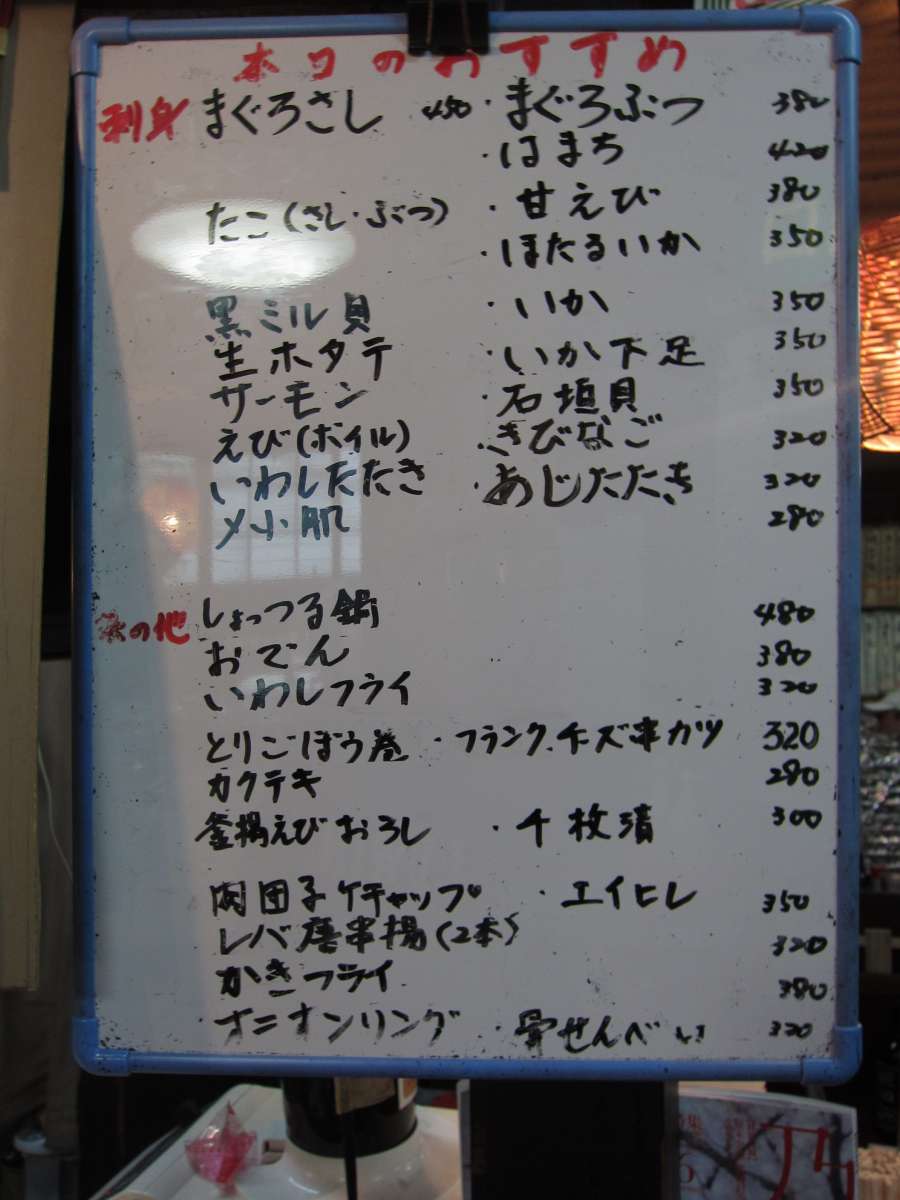 本日のおすすめ
刺身 まぐろさし 450 ・まぐろぶつ 380
・はまち 420
たこ(さし・ぶつ) ・甘えび 380
・ほたるいか 350
黒ミル貝 ・いか 350
生ホタテ ・いか下足 350
サーモン ・石垣貝 350
えび(ボイル) ・きびなご 320
いわしたたき ・あじたたき 320
〆小肌 280
その他 しょっつる鍋 480
おでん 380
いわしフライ 320
とりごぼう巻 ・フランク、チーズ串カツ 320
カクテキ 280
釜揚えびおろし ・千枚漬 300
肉団子ケチャップ ・エイヒレ 350
レバ唐串揚(2本) 320
かきフライ 380
オニオンリング ・骨せんべい 320